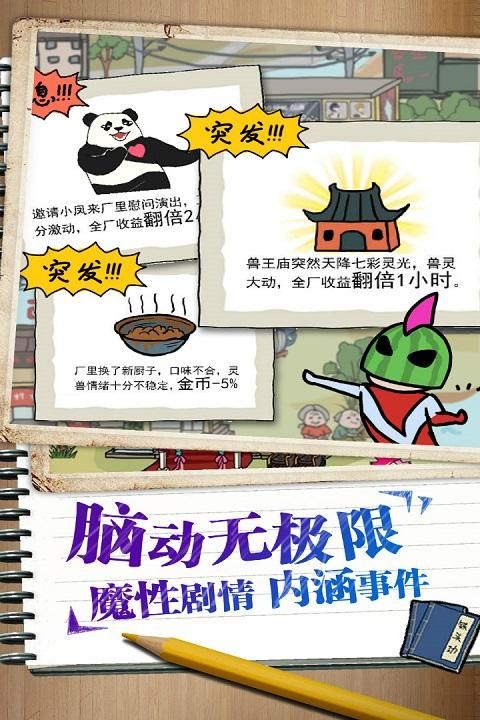 息!!!
突发!!!
邀请小凤来厂里慰问演出，
分激动，全厂收益翻倍2
兽王庙突然天降七彩灵光，兽灵
大动，全厂收益翻倍1小时。
突发!!!
厂里换了新厨子，口味不合，灵
兽情绪十分不稳定，金币-5%
脑动无极限
魔性剧情 内涵事件
铁头功